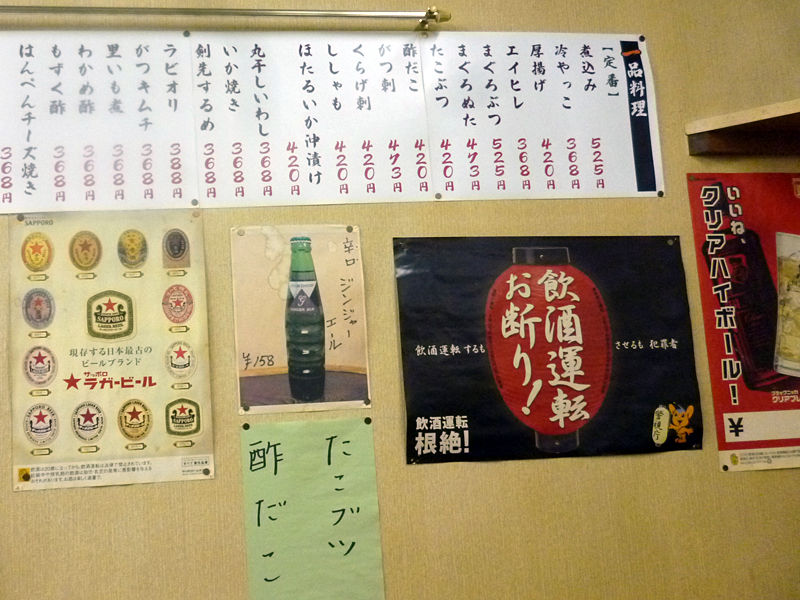 一品料理
【定番】
煮込み 525円
冷やっこ 368円
厚揚げ 420円
エイヒレ 368円
まぐろぶつ 525円
まぐろぬた 473円
たこぶつ 420円
酢だこ 420円
がつ刺 473円
くらげ刺 420円
ししゃも 420円
ほたるいか沖漬け 420円
丸干しいわし 368円
いか焼き 368円
剣先するめ 368円
ラビオリ 388円
がつキムチ 368円
里いも煮 368円
わかめ酢 368円
もずく酢 368円
はんぺんチーズ焼き 368円
SAPPORO
SAPPORO
LAGER BEER
現存する日本最古の
ビールブランド
サッポロ
ラガービール
辛口 ジンジャー
エール
¥158
たこブツ
酢だこ
飲酒運転
お断り!
飲酒運転するも
させるも 犯罪者
飲酒運転
根絶!
警視庁
いいね、
クリアハイボール!
ブラックニッカ
¥